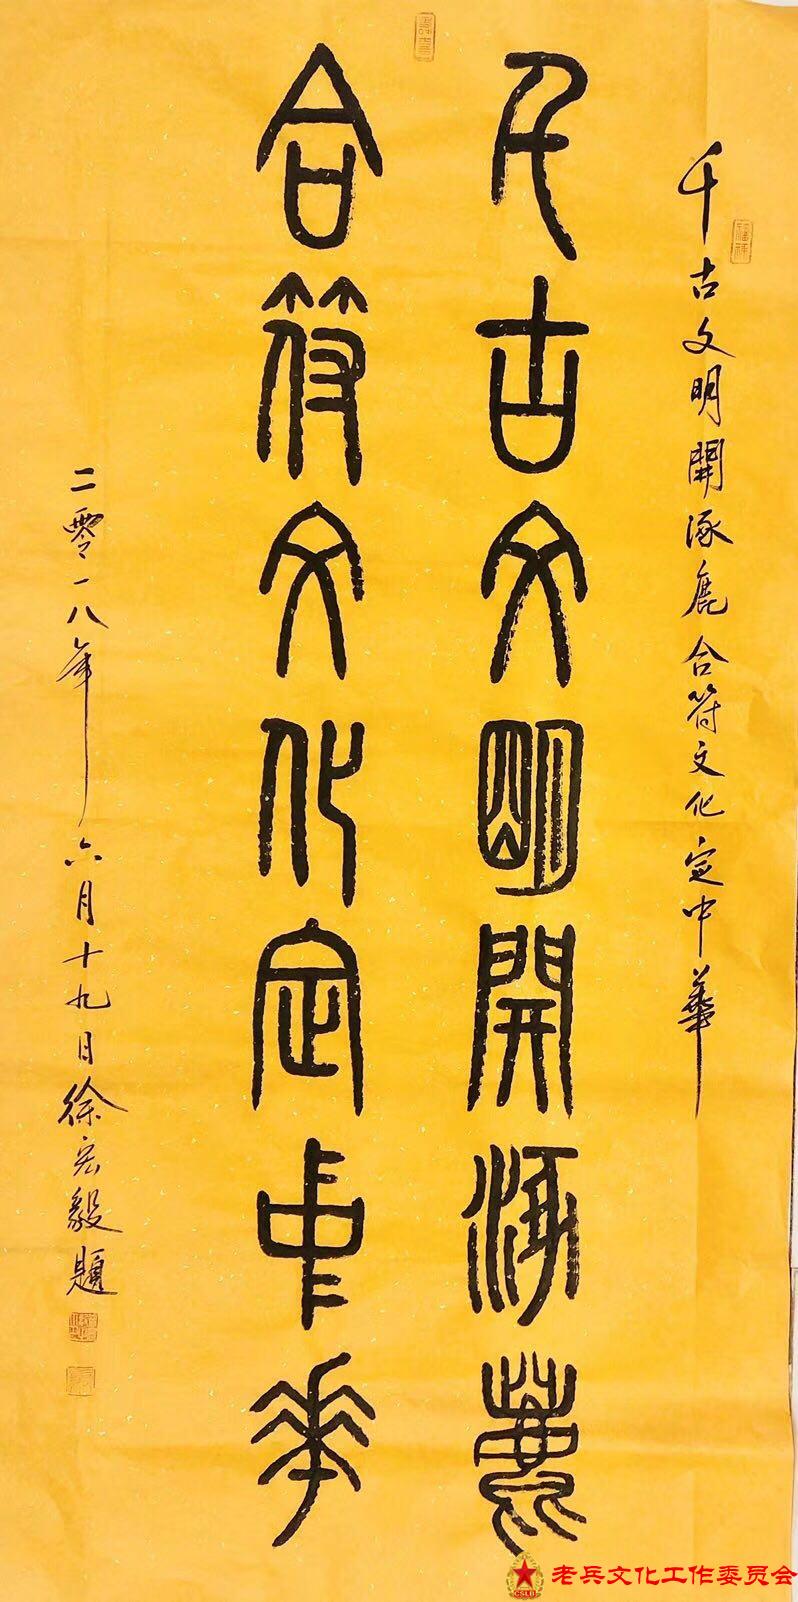 千古文明開涿鹿合符文化定中華
千古文明開涿鹿
合符文化定中華
二零一八年六月十九日徐宏毅題
老兵文化工作委员会
CSLB